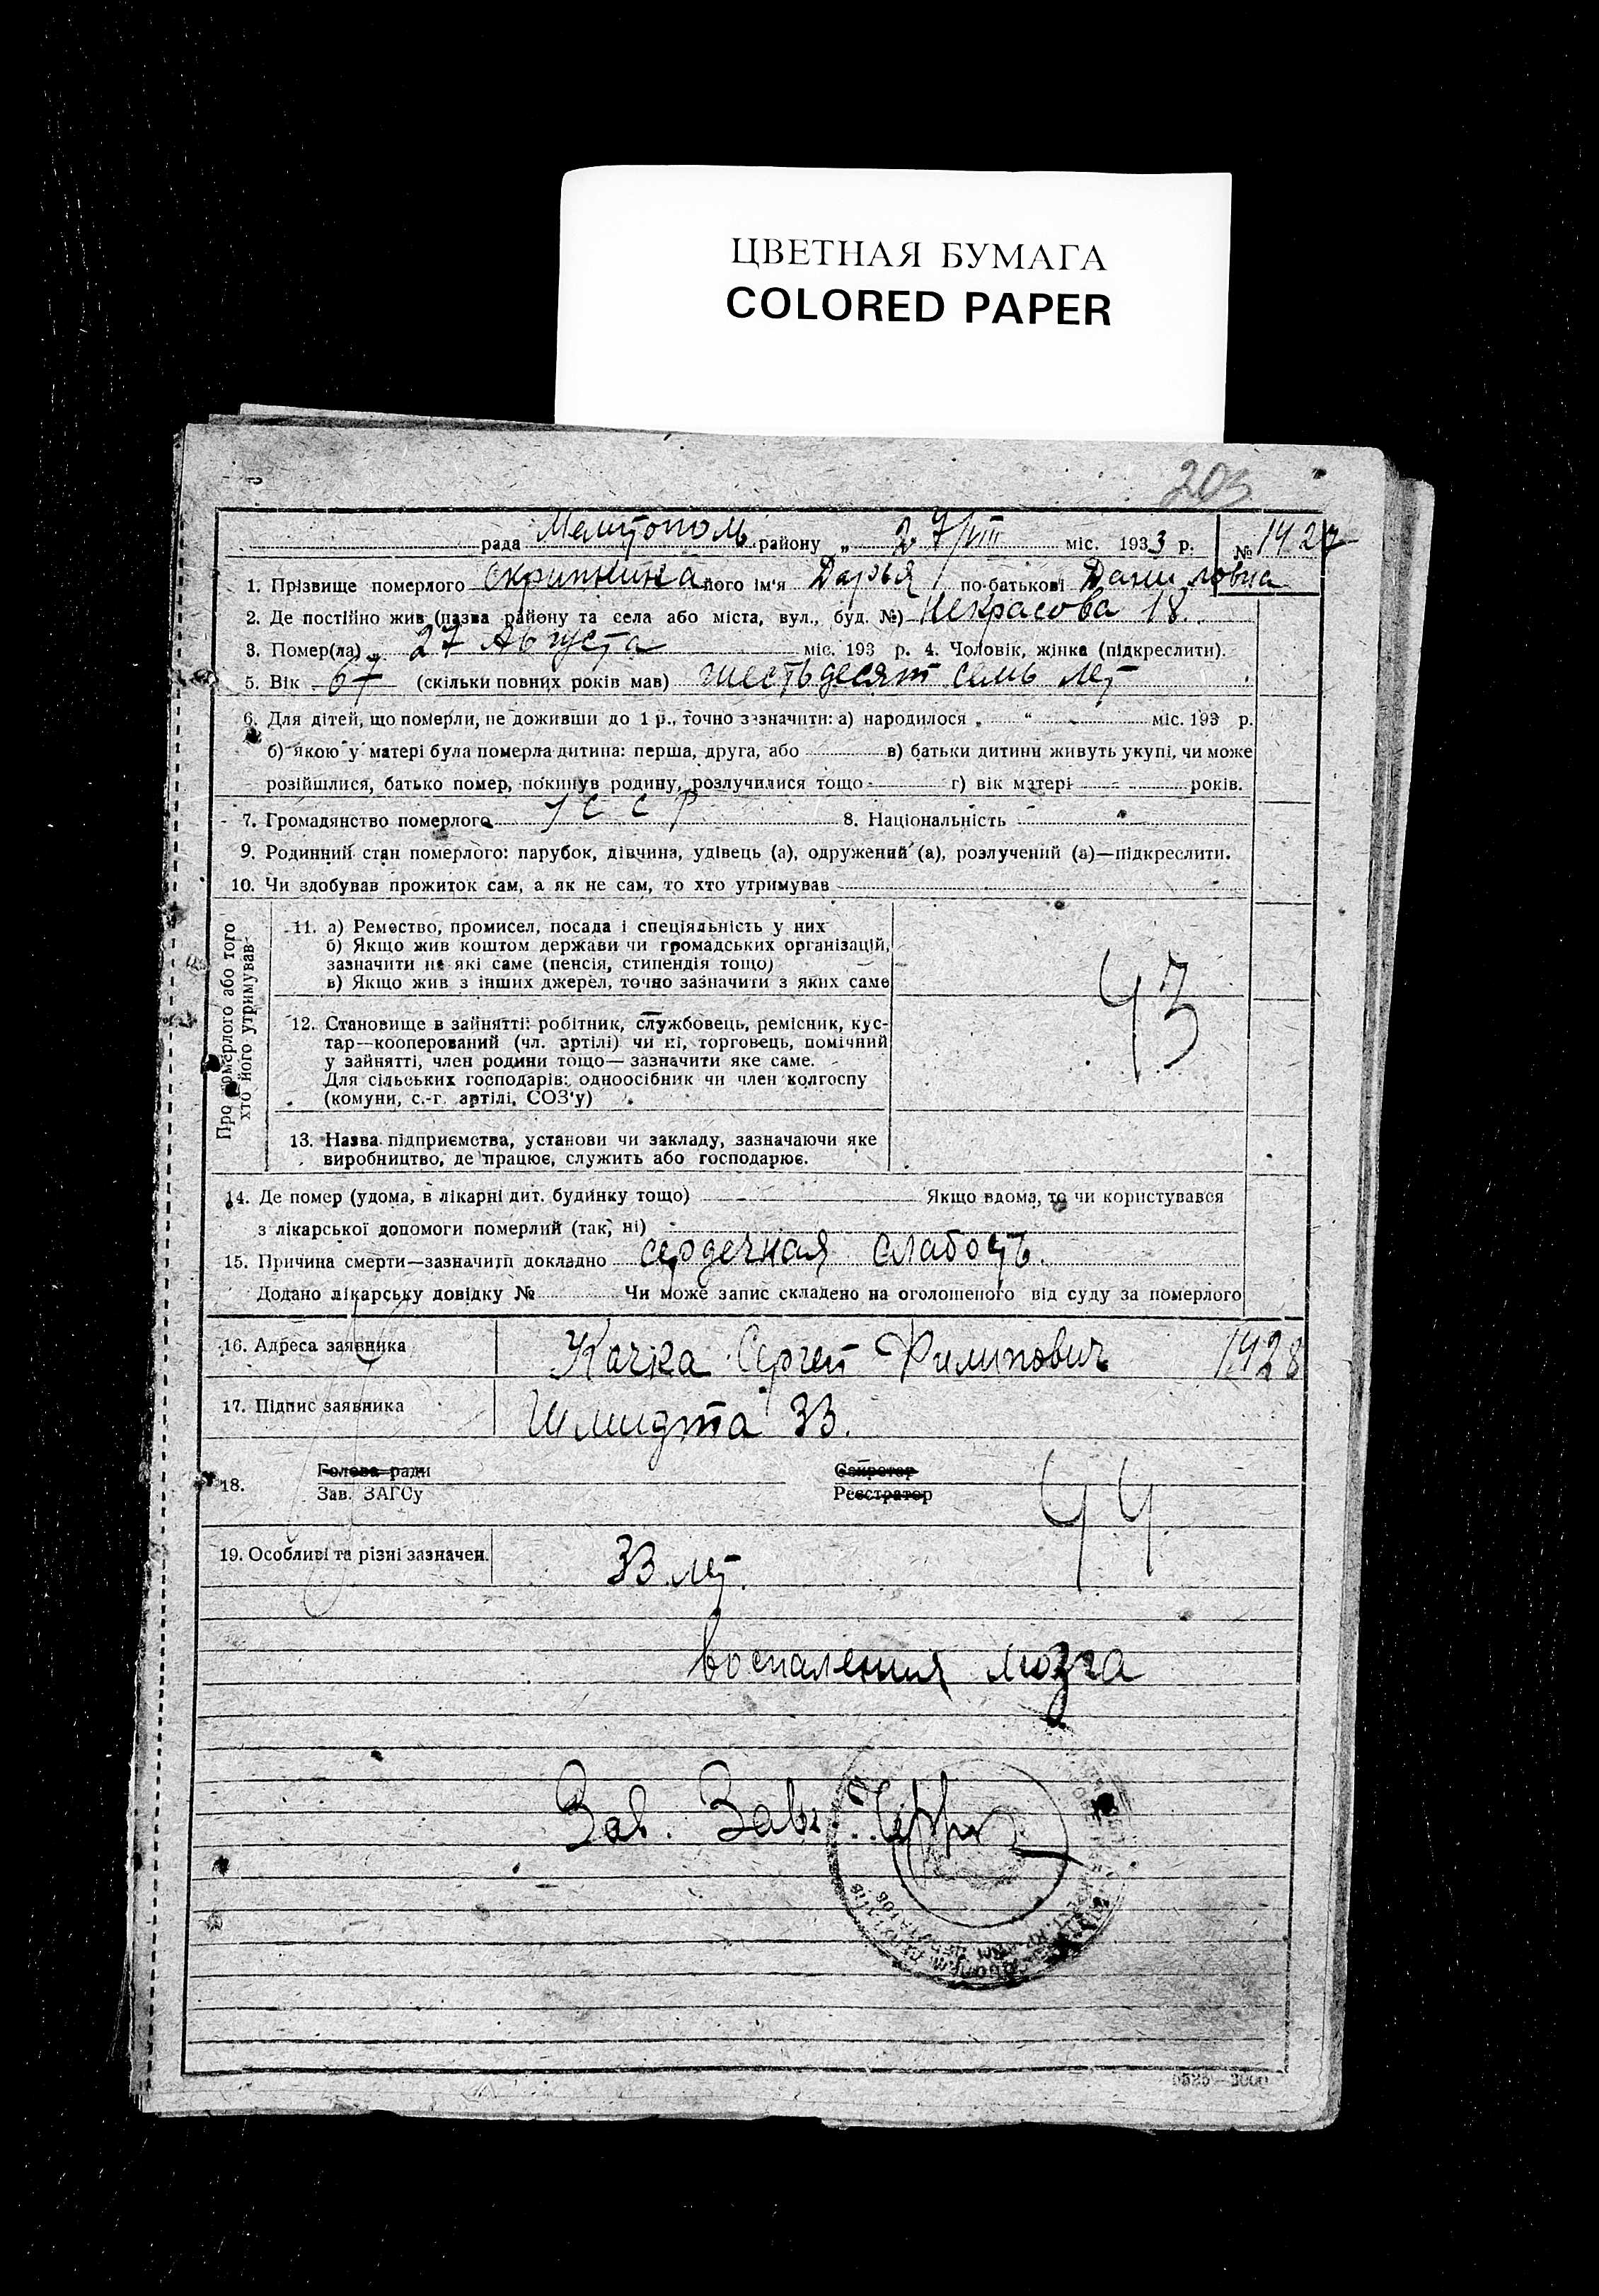 ЦВЕТНАЯ БУМАГА
COLORED PAPER
203
рада Мелитополь району „ 27/VIII міс. 1933 р. № 1427
1. Прізвище померлого Скрипкина його ім'я Дарья по-батькові Даниловна
2. Де постійно жив (назва району та села або міста, вул., буд. №) Некрасова 18.
3. Помер(ла) „ 27 Августа міс. 193 р. 4. Чоловік, жінка (підкреслити).
5. Вік 67 (скільки повних років мав) шестьдесят семь лет
6. Для дітей, що померли, не доживши до 1 р., точно зазначити: а) народилося „ “ міс. 193 р.
б) якою у матері була померла дитина: перша, друга, або в) батьки дитини живуть укупі, чи може
розійшлися, батько помер, покинув родину, розлучилися тощо г) вік матері років.
7. Громадянство померлого УССР 8. Національність
9. Родинний стан померлого: парубок, дівчина, удівець (а), одружений (а), розлучений (а)—підкреслити.
10. Чи здобував прожиток сам, а як не сам, то хто утримував
Про померлого або того
хто його утримував
11. а) Ремество, промисел, посада і спеціяльність у них
б) Якщо жив коштом держави чи громадських організацій,
зазначити не які саме (пенсія, стипендія тощо)
в) Якщо жив з інших джерел, точно зазначити з яких саме
43
12. Становище в зайнятті: робітник, службовець, ремісник, кус-
тар—кооперований (чл. артілі) чи ні, торговець, помічний
у зайнятті, член родини тощо— зазначити яке саме.
Для сільських господарів: одноосібник чи член колгоспу
(комуни, с.-г. артілі, СОЗ'у)
13. Назва підприємства, установи чи закладу, зазначаючи яке
виробництво, де працює, служить або господарює.
14. Де помер (удома, в лікарні дит. будинку тощо) Якщо вдома, то чи користувався
з лікарської допомоги померлий (так, ні)
15. Причина смерти—зазначити докладно сердечная слабость.
Додано лікарську довідку № Чи може запис складено на оголошеного від суду за померлого
16. Адреса заявника Качка Сергей Филипович 1428
17. Підпис заявника Шмидта 33.
18. Голова ради Секретар
Зав. ЗАГСу Реєстратор
44
19. Особливі та різні зазначен. 33 лет.
воспаления мозга
Зав.